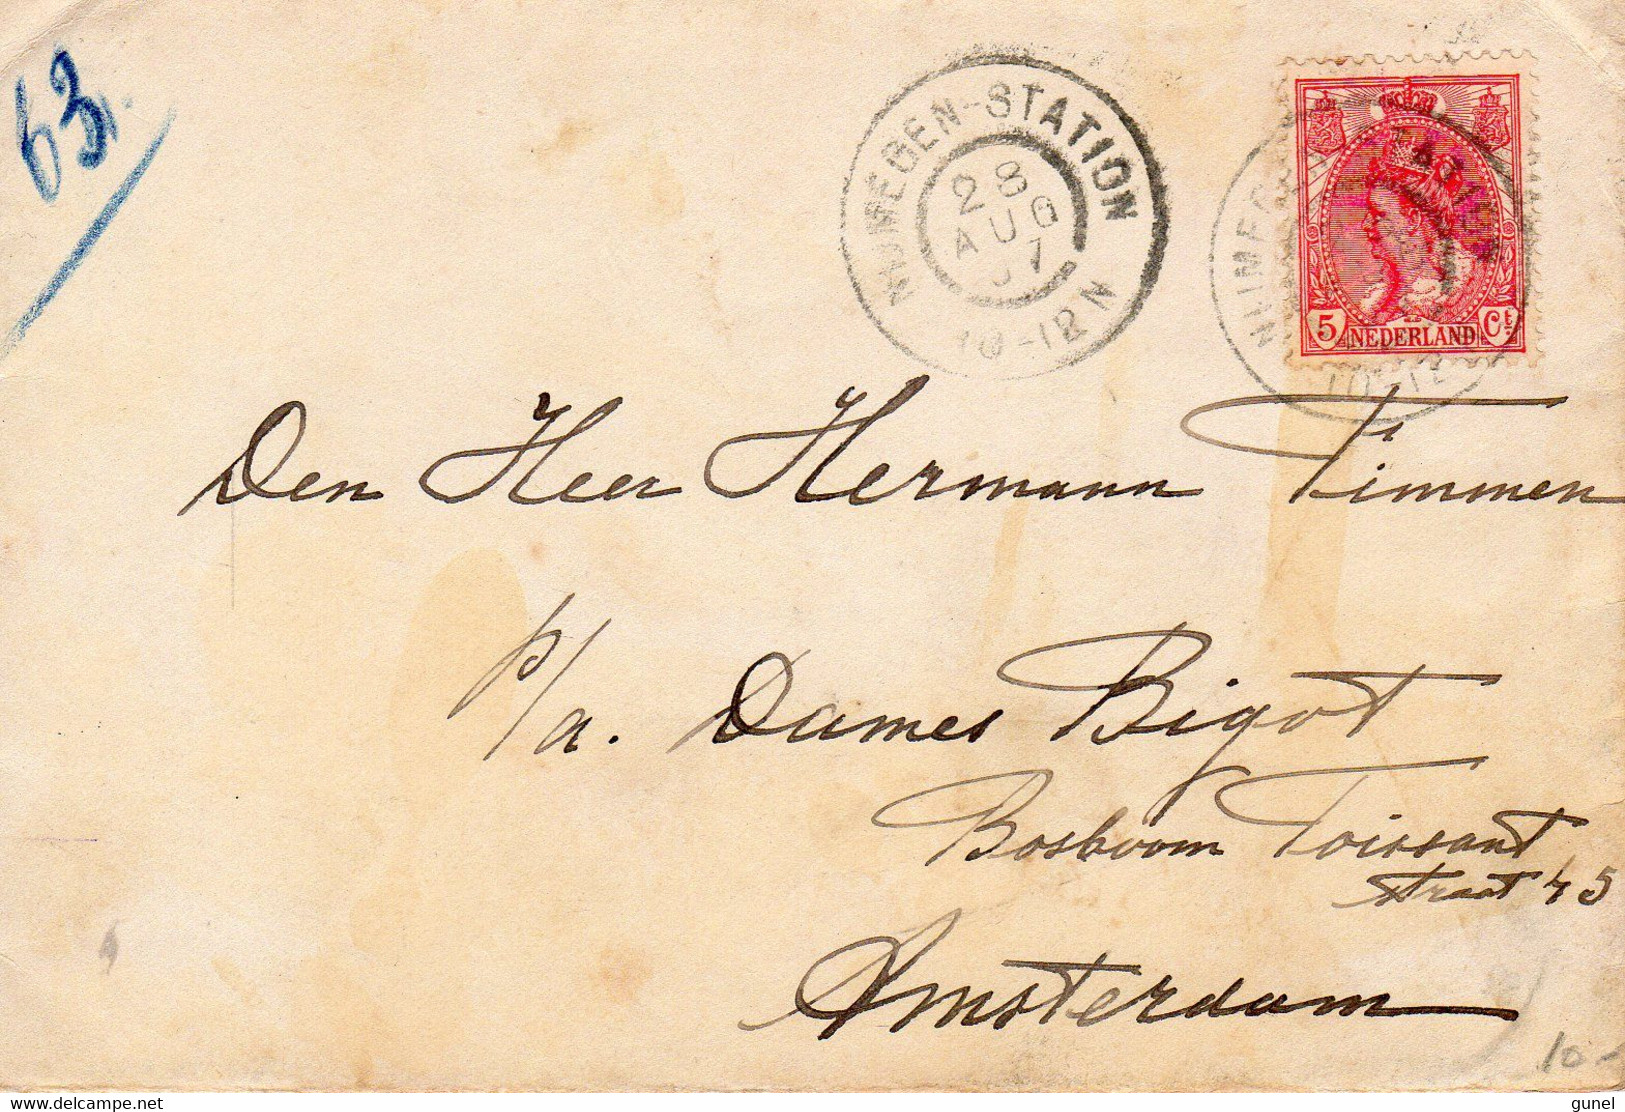 63.
NIJMEGEN-STATION
28
AUG
07
10-12 N
NIJMEG
10-12
5 NEDERLAND Ct
Den Heer Hermann Timmen
p/a. Dames Bigot
Bosboom Toissant
straat 45
Amsterdam
10-
www.delcampe.net
gunel